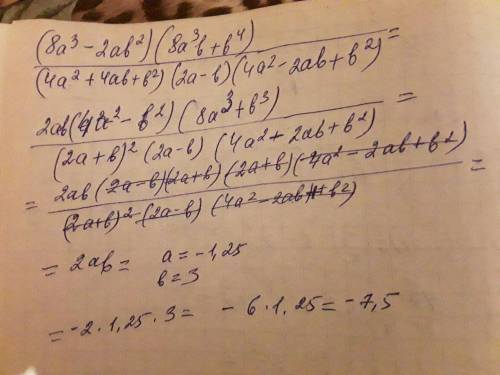 (8a³ - 2ab²) (8a³b + b⁴)
(4a² + 4ab + b²) (2a - b) (4a² - 2ab + b²) =
2ab(4a² - b²) (8a³ + b³)
(2a + b)² (2a - b) (4a² + 2ab + b²) =
= 2ab (2a - b)(2a + b) (2a + b) (4a² - 2ab + b²)
(2a + b)² (2a - b) (4a² - 2ab + b²) =
= 2ab = a = -1,25
b = 3
= -2 · 1,25 · 3 = - 6 · 1,25 = -7,5